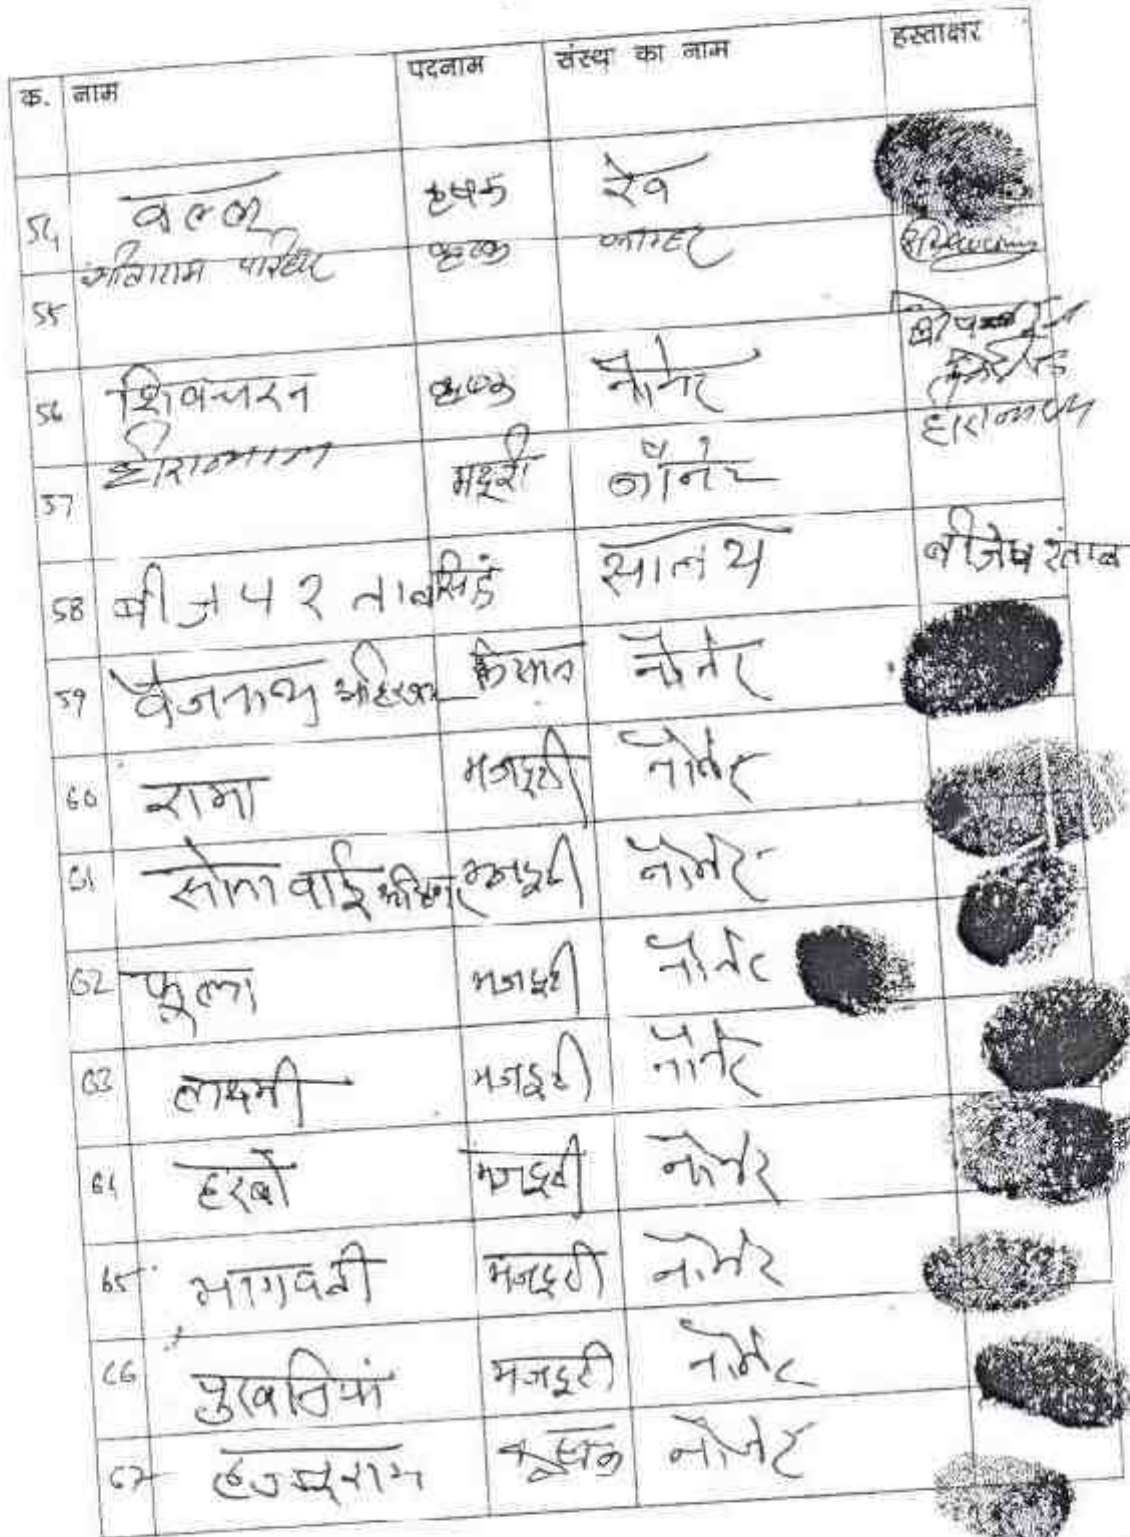 क. नाम पदनाम संस्था का नाम हस्ताक्षर
54 वल्लू कृषक रेव
सीताराम परिहार कृषक
55
56 शिवचरन कृषक नौनेर
हीरालाल हीरालाल
57 मदूरी नौनेर
58 बीज प र ताबसिहं सालय बीजेप रंताब
59 वैजनाथ अहिरवार किसान नौनेर
60 रामा मजदूरी नौनेर
61 सोना वाई अहिरवार मजदूरी नौनेर
62 फूला मजदूरी नौनेर
63 लाक्ष्मी मजदूरी नौनेर
64 हरबो मजदूरी नौनेर
65 भागवती मजदूरी नौनेर
66 मजदूरी नौनेर
67 कृषक नौनेर